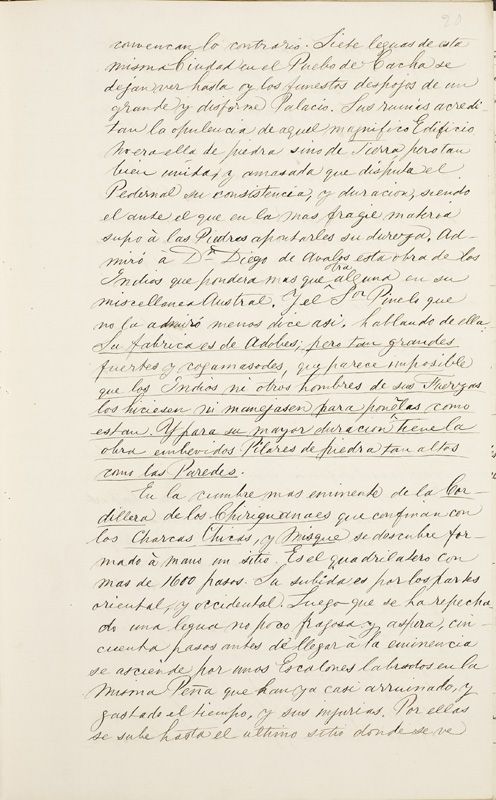 20
convencan lo contrario. Siete leguas de esta
misma Ciudad en el Pueblo de Cacha se
dejan ver hasta oy los funestos despojos de un
grande y disforme Palacio. Sus ruinas acredi-
tan la opulencia de aquel magnifico Edificio
no era ella de piedra sino de Tierra pero tan
bien unida, y amasada que disputa el
Pedernal su consistencia, y duracion, siendo
el ante el que en la mas fragil materia
supo à las Piedras apontarles su dureza. Ad-
miró a Dn Diego de Avalos esta obra de los
Indios que pondera mas que otra alguna en su
miscellanea Austral. Y el Sor Pinelo que
no la admiró menos dice asi. hablando de ella:
Su fabrica es de Adobes; pero tan grandes
fuertes y
que los Indios ni otros hombres de sus Fuerzas
los hiciesen ni manejasen para ponerlas como
estan. Y para su mayor duracion tiene la
obra embevidos Pilares de piedra tan altos
como las Paredes.
En la cumbre mas eminente de la Cor-
dillera de los Chiriguanaes que confinan con
los Charcas Chicas, y Misque se descubre for-
mado à mano un sitio. Es el quadrilatero con
mas de 1600 pasos. Su subida es por los partes
oriental, y occidental. Luego que se ha repecha
do una legua no poco fragosa y aspera, cin-
cuenta pasos antes de llegar à la eminencia
se asciende por unos Escalones labrados en la
misma Peña que han ya casi arruinado, y
gastado el tiempo, y sus injurias. Por ellas
se sube hasta el ultimo sitio donde se ve